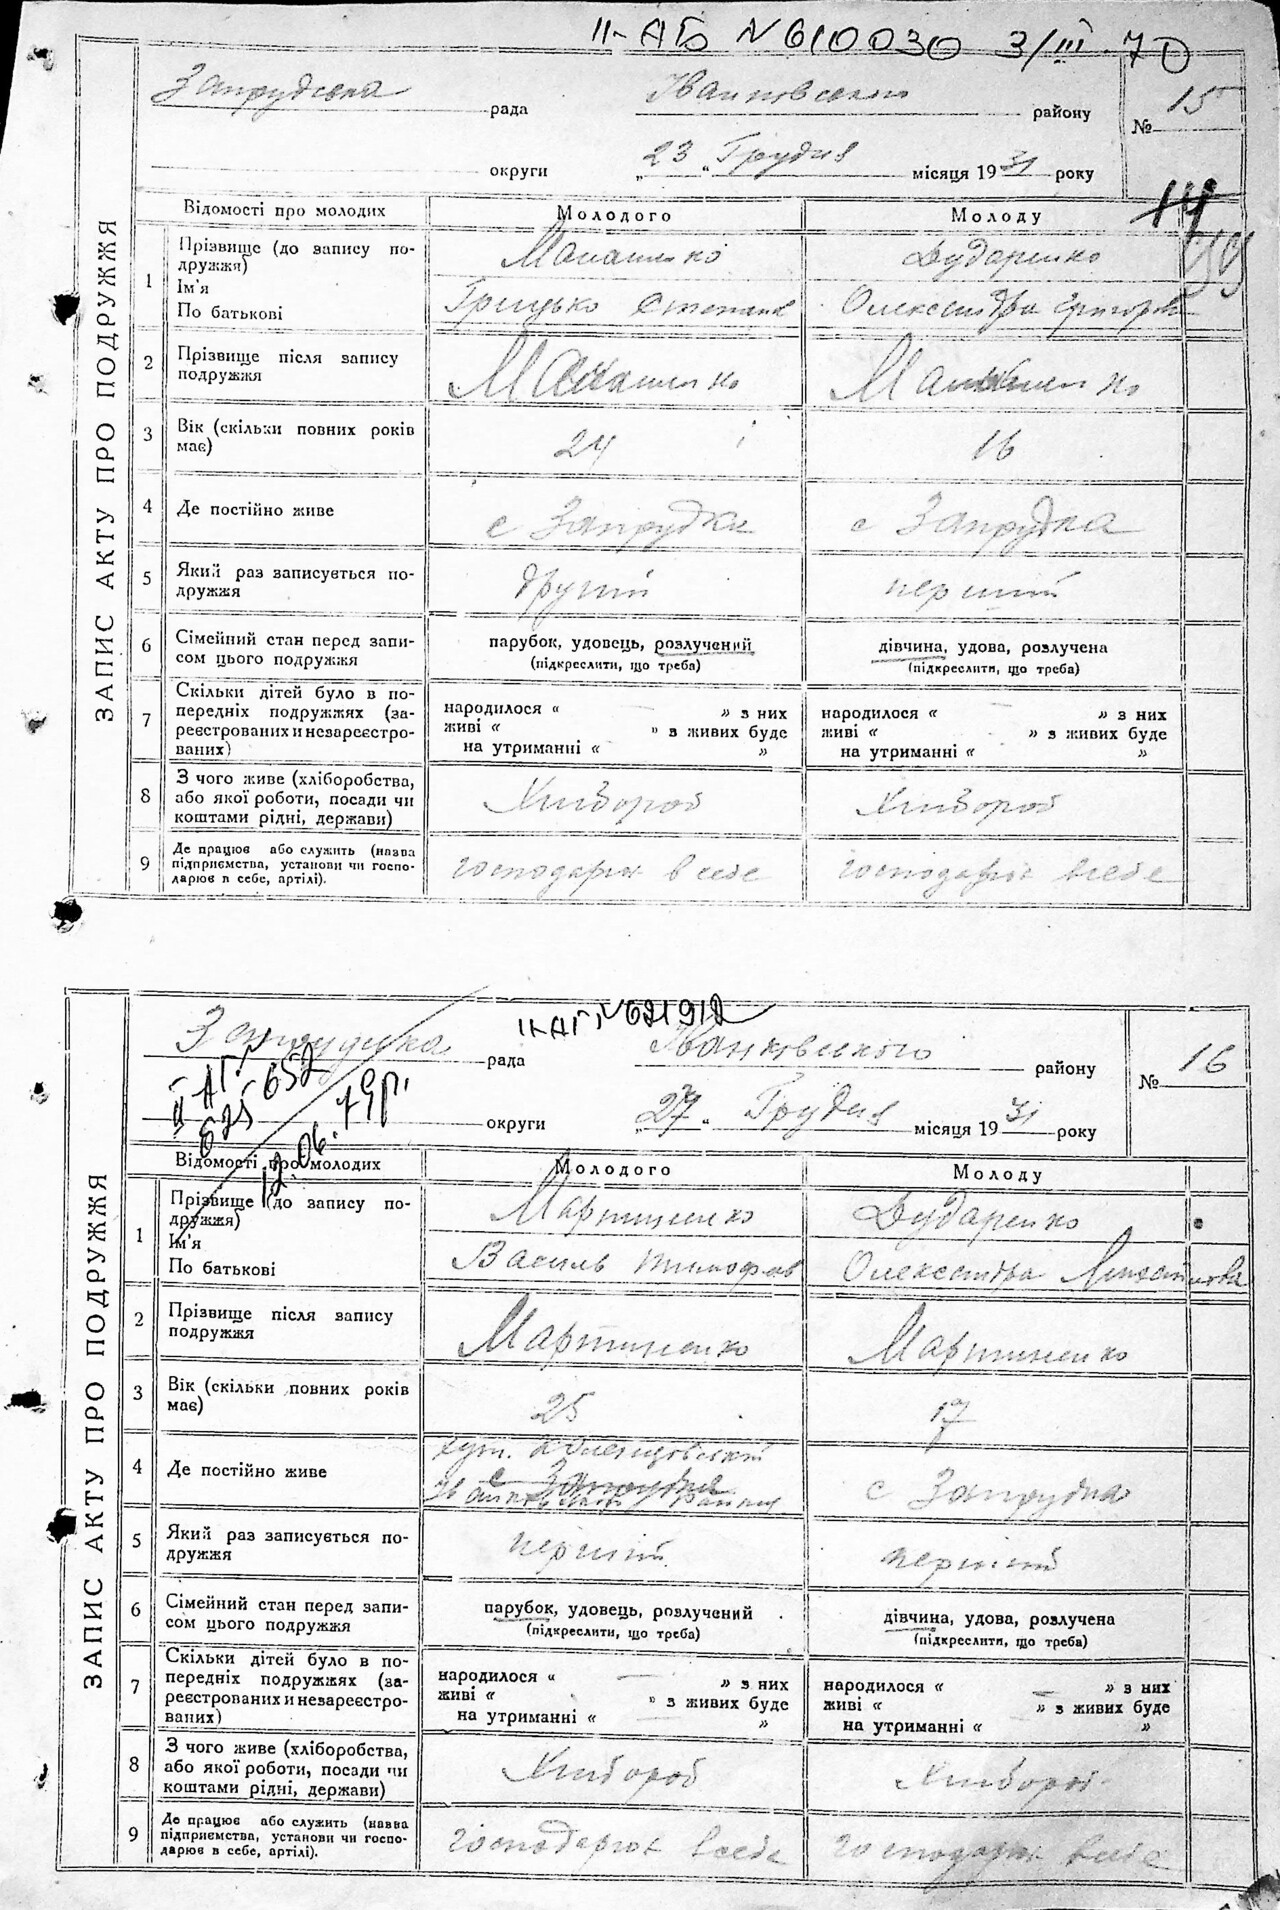 II-АБ № 610030 3/III 70
ЗАПИС АКТУ ПРО ПОДРУЖЖЯ
Запрудська рада Іванковського району № 15
округи „23“ Грудня місяця 1931 року
14
Відомості про молодих Молодого Молоду
1 Прізвище (до запису по-
дружжя)
Ім'я
По батькові
Манашенко Дударенко
Грицько Степан Олександра Григоров
2 Прізвище після запису
подружжя
Манашенко Манашенко
3 Вік (скільки повних років
має)
24 16
4 Де постійно живе с Запрудка с Запрудка
5 Який раз записується по-
дружжя
другий перший
6 Сімейний стан перед запи-
сом цього подружжя
парубок, удовець, розлучений дівчина, удова, розлучена
(підкреслити, що треба) (підкреслити, що треба)
7 Скільки дітей було в по-
передніх подружжях (за-
реєстрованих и незареєстро-
ваних)
народилося « » з них народилося « » з них
живі « » з живих буде живі « » з живих буде
на утриманні « » на утриманні « »
8 З чого живе (хліборобства,
або якої роботи, посади чи
коштами рідні, держави)
Хлібороб Хлібороб
9 Де працює або служить (назва
підприємства, установи чи госпо-
дарює в себе, артілі).
господарює в себе господарює в себе
ЗАПИС АКТУ ПРО ПОДРУЖЖЯ
II-АГ № 621912
Запрудська рада Іванковського району № 16
II АГ
625652
12.06.79р.
округи „27“ Грудня місяця 1931 року
Відомості про молодих Молодого Молоду
1 Прізвище (до запису по-
дружжя)
Ім'я
По батькові
Мартиненко Дударенко
Василь Тимофов Олександра
2 Прізвище після запису
подружжя
Мартиненко Мартиненко
3 Вік (скільки повних років
має)
25 17
4 Де постійно живе хут. с Запрудка
с Запрудка
5 Який раз записується по-
дружжя
перший перший
6 Сімейний стан перед запи-
сом цього подружжя
парубок, удовець, розлучений дівчина, удова, розлучена
(підкреслити, що треба) (підкреслити, що треба)
7 Скільки дітей було в по-
передніх подружжях (за-
реєстрованих и незареєстро-
ваних)
народилося « — » з них народилося « — » з них
живі « » з живих буде живі « — » з живих буде
на утриманні « » на утриманні « »
8 З чого живе (хліборобства,
або якої роботи, посади чи
коштами рідні, держави)
Хлібороб Хлібороб
9 Де працює або служить (назва
підприємства, установи чи госпо-
дарює в себе, артілі).
господарює в себе господарює в себе